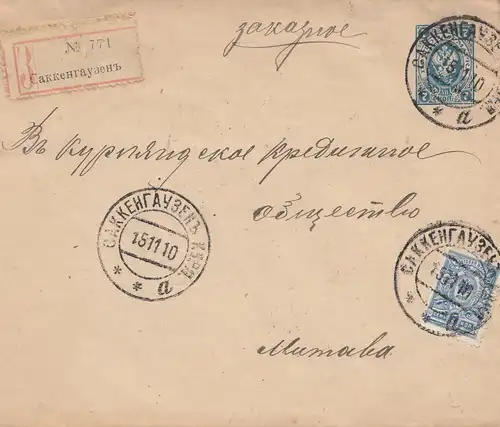 заказное
№ 771
Саккенгаузенъ
САККЕНГАУЗЕНЪ
15 11 10
* * а
Въ Курляндское кредитное
общество
САККЕНГАУЗЕНЪ КУРЛ
15 11 10
* * а
САККЕНГАУЗЕНЪ
15 11 10
* * а
Митава